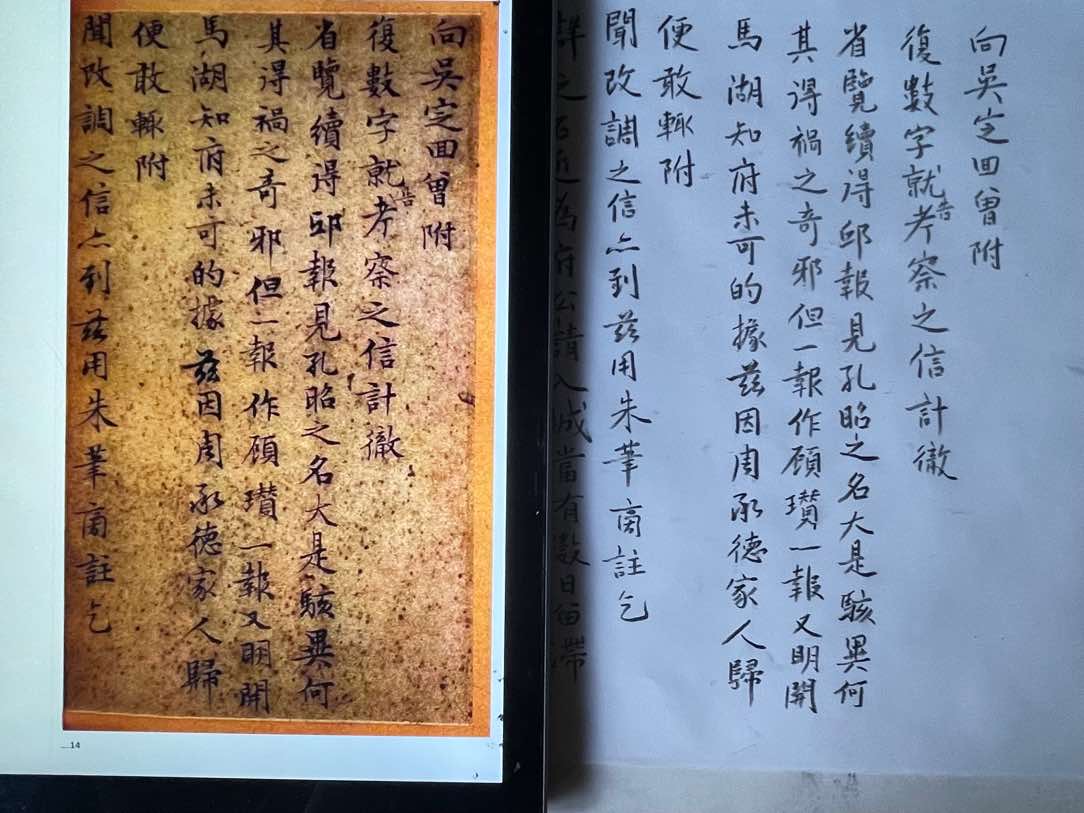 向吳定回曾附
復數字就告考察之信計徹
省覽續得邱報見孔昭之名大是駭異何
其得禍之奇邪但一報作顧瓚一報又明開
馬湖知府未可的據茲因周承德家人歸
便敢輒附
聞改調之信亦到茲用朱筆啇註乞
14
向吳定回曾附
復數字就告考察之信計徹
省覽續得邱報見孔昭之名大是駭異何
其得禍之奇邪但一報作顧瓚一報又明開
馬湖知府未可的據茲因周承德家人歸
便敢輒附
聞改調之信亦到茲用朱筆啇註乞
之 為府公請入城當有數日留帶